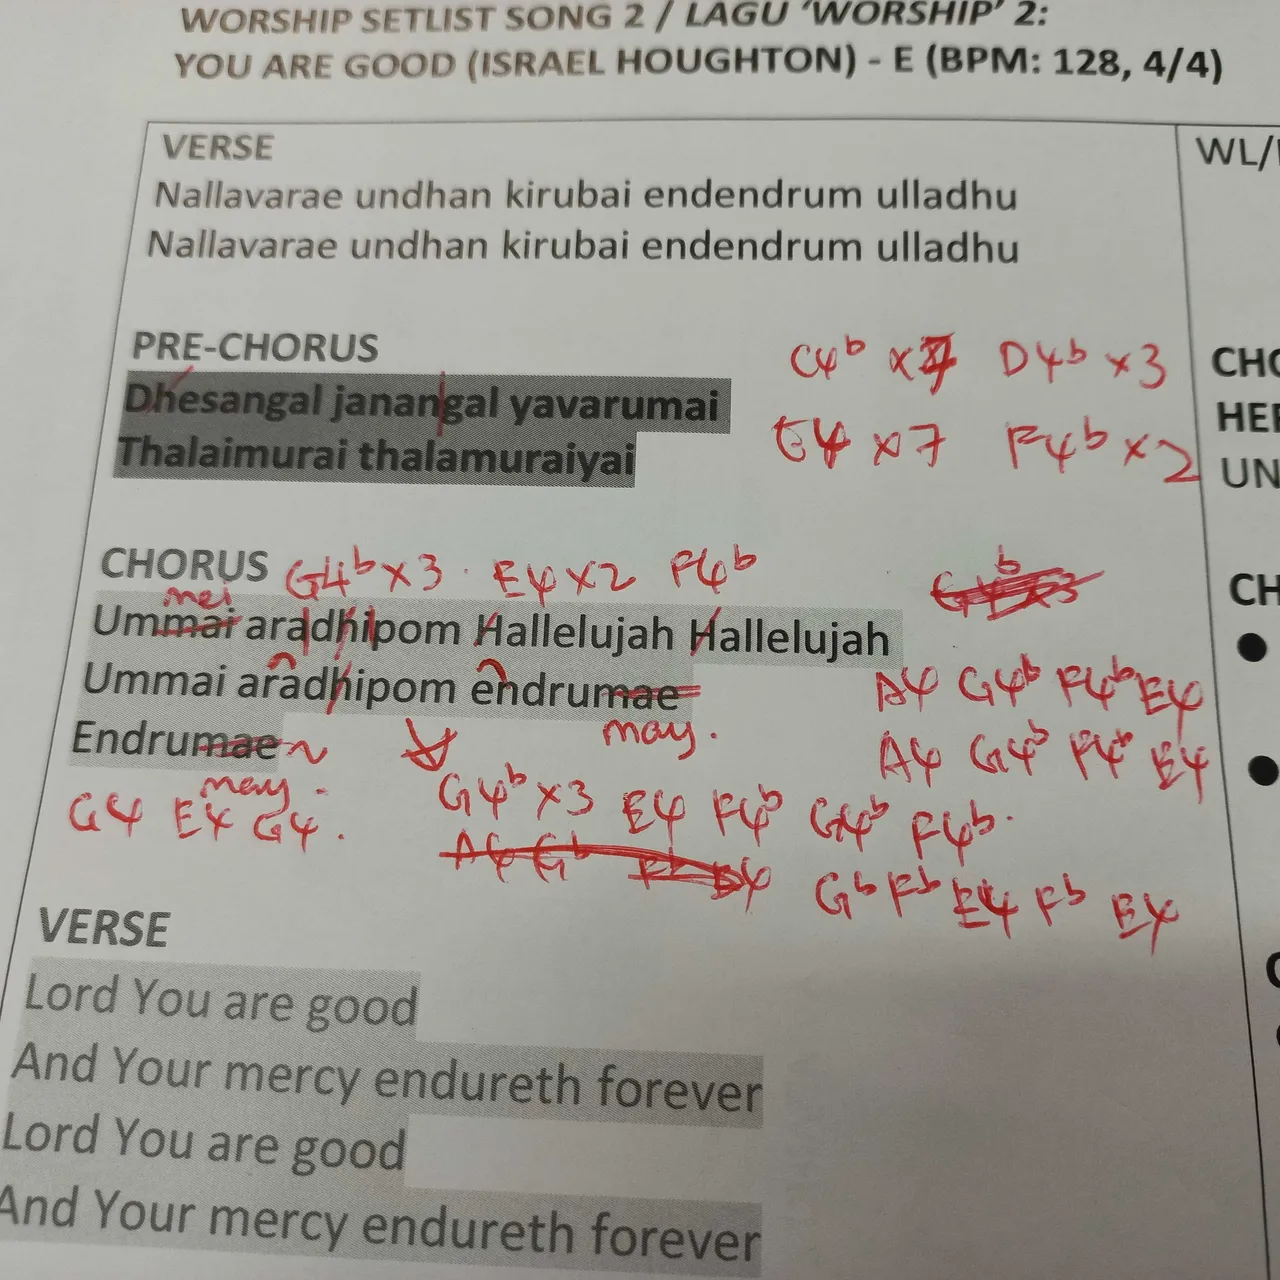 WORSHIP SETLIST SONG 2 / LAGU ‘WORSHIP’ 2:
YOU ARE GOOD (ISRAEL HOUGHTON) - E (BPM: 128, 4/4)
VERSE
Nallavarae undhan kirubai endendrum ulladhu
Nallavarae undhan kirubai endendrum ulladhu
PRE-CHORUS
C4b x D4b x3
Dhesangal janangal yavarumai
E4 x7 F4b x2
Thalaimurai thalamuraiyai
CHORUS G4b x3 . E4 x2 F4b
mei
Ummai aradhipom Hallelujah Hallelujah
Ummai aradhipom endrumae
A4 G4b F4b E4
may.
Endrumae ~
A4 G4b F4b E4
may.
G4 E4 G4.
G4b x3 E4 F4b G4b F4b.
Gb Fb E4 Fb E4
VERSE
Lord You are good
And Your mercy endureth forever
Lord You are good
And Your mercy endureth forever
WL/
CHO
HE
UN
CH